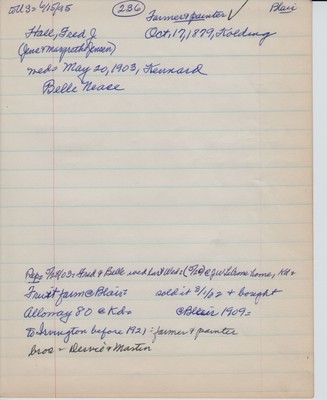 236 Farmer & painter ✓ Blair
Hall, Fred J. Oct. 17, 1879, Kolding
(Jens & Margretha Jensen)
wed = May 20, 1903, Kennard
Belle Nease
Fred & Belle wed last Wed = home,
Fruit farm @ Blair = sold it 3/1/02 & bought
Alloway 80 @ Kd = @ Blair 1909 =
to Irvington before 1921 = farmer & painter
bros = & Martin